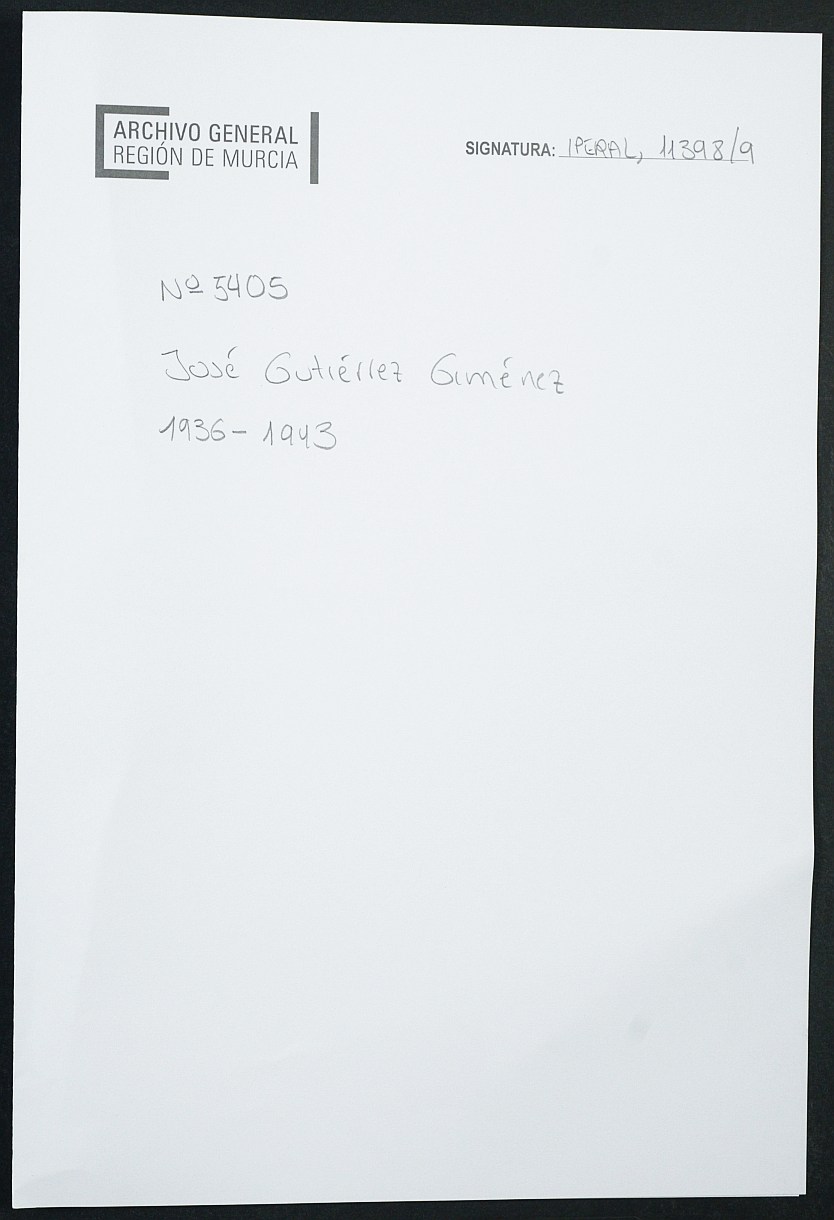 ARCHIVO GENERAL
REGIÓN DE MURCIA
SIGNATURA: IPERAL, 11398/9
Nº 5405
José Gutiérrez Giménez
1936-1943